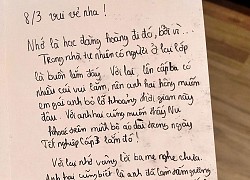 8/3 vui vẻ nha!
Nhớ là học đàng hoàng đi đó, bởi vì...
Trong nhà tự nhiên có người ở lại lớp
là buồn lắm đấy. Với lại, lên cấp ba có
nhiều cái vui lắm, nên anh hai hông muốn
em gái anh bỏ lỡ khoảng thời gian này
đâu. Với anh hai cũng muốn thấy
khoác trên mình bộ áo dài trong ngày
Tết nghiệp Cấp 3 lắm đó!
Với lại nhớ vâng lời ba mẹ nghe chưa.
Anh hai cũng biết là anh đã làm